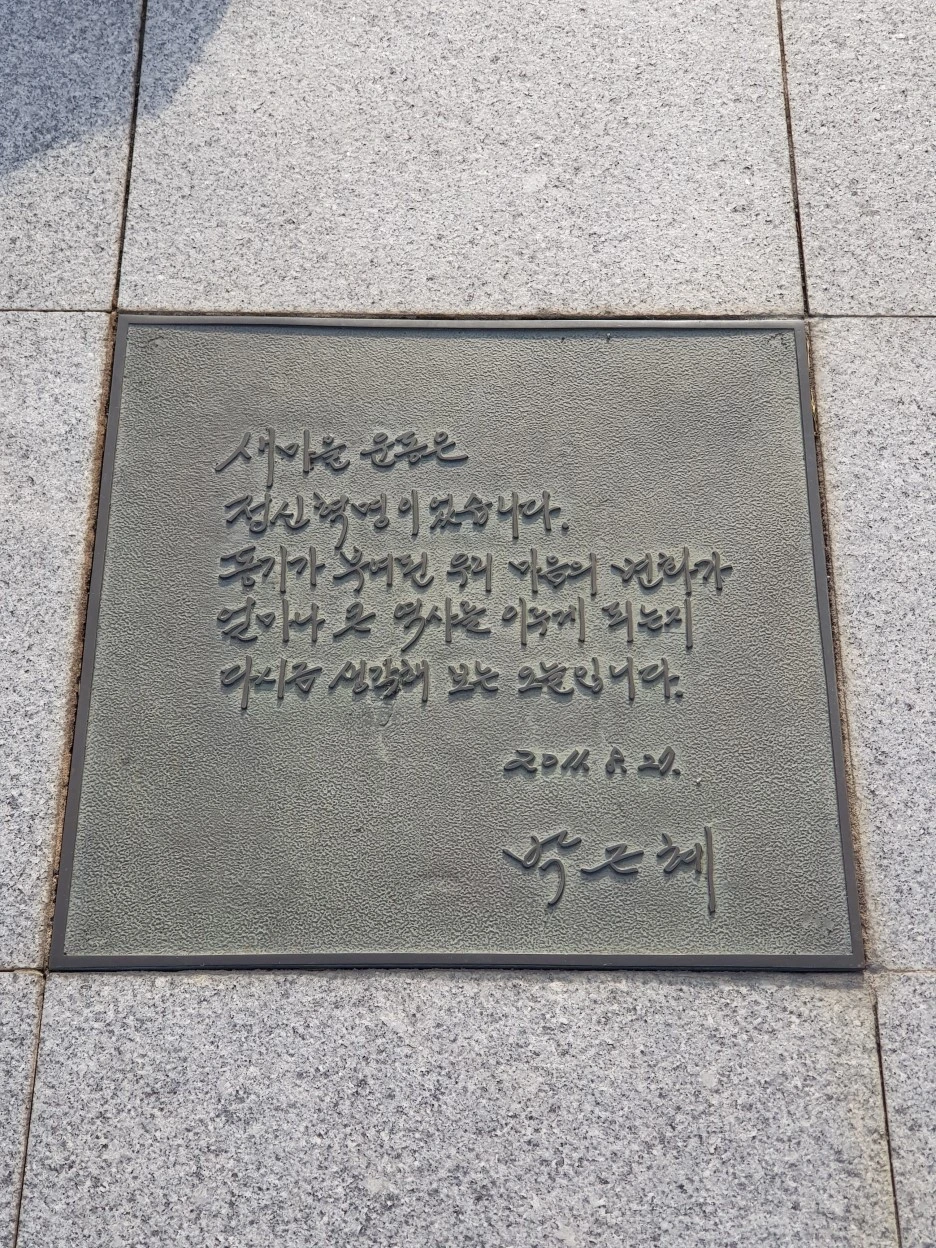 새마을 운동은
정신혁명이었습니다.
동기가 부여된 우리 마음의 변화가
얼마나 큰 역사를 이루게 되는지
다시금 생각해 보는 오늘입니다.
2011. 8. 21.
박근혜